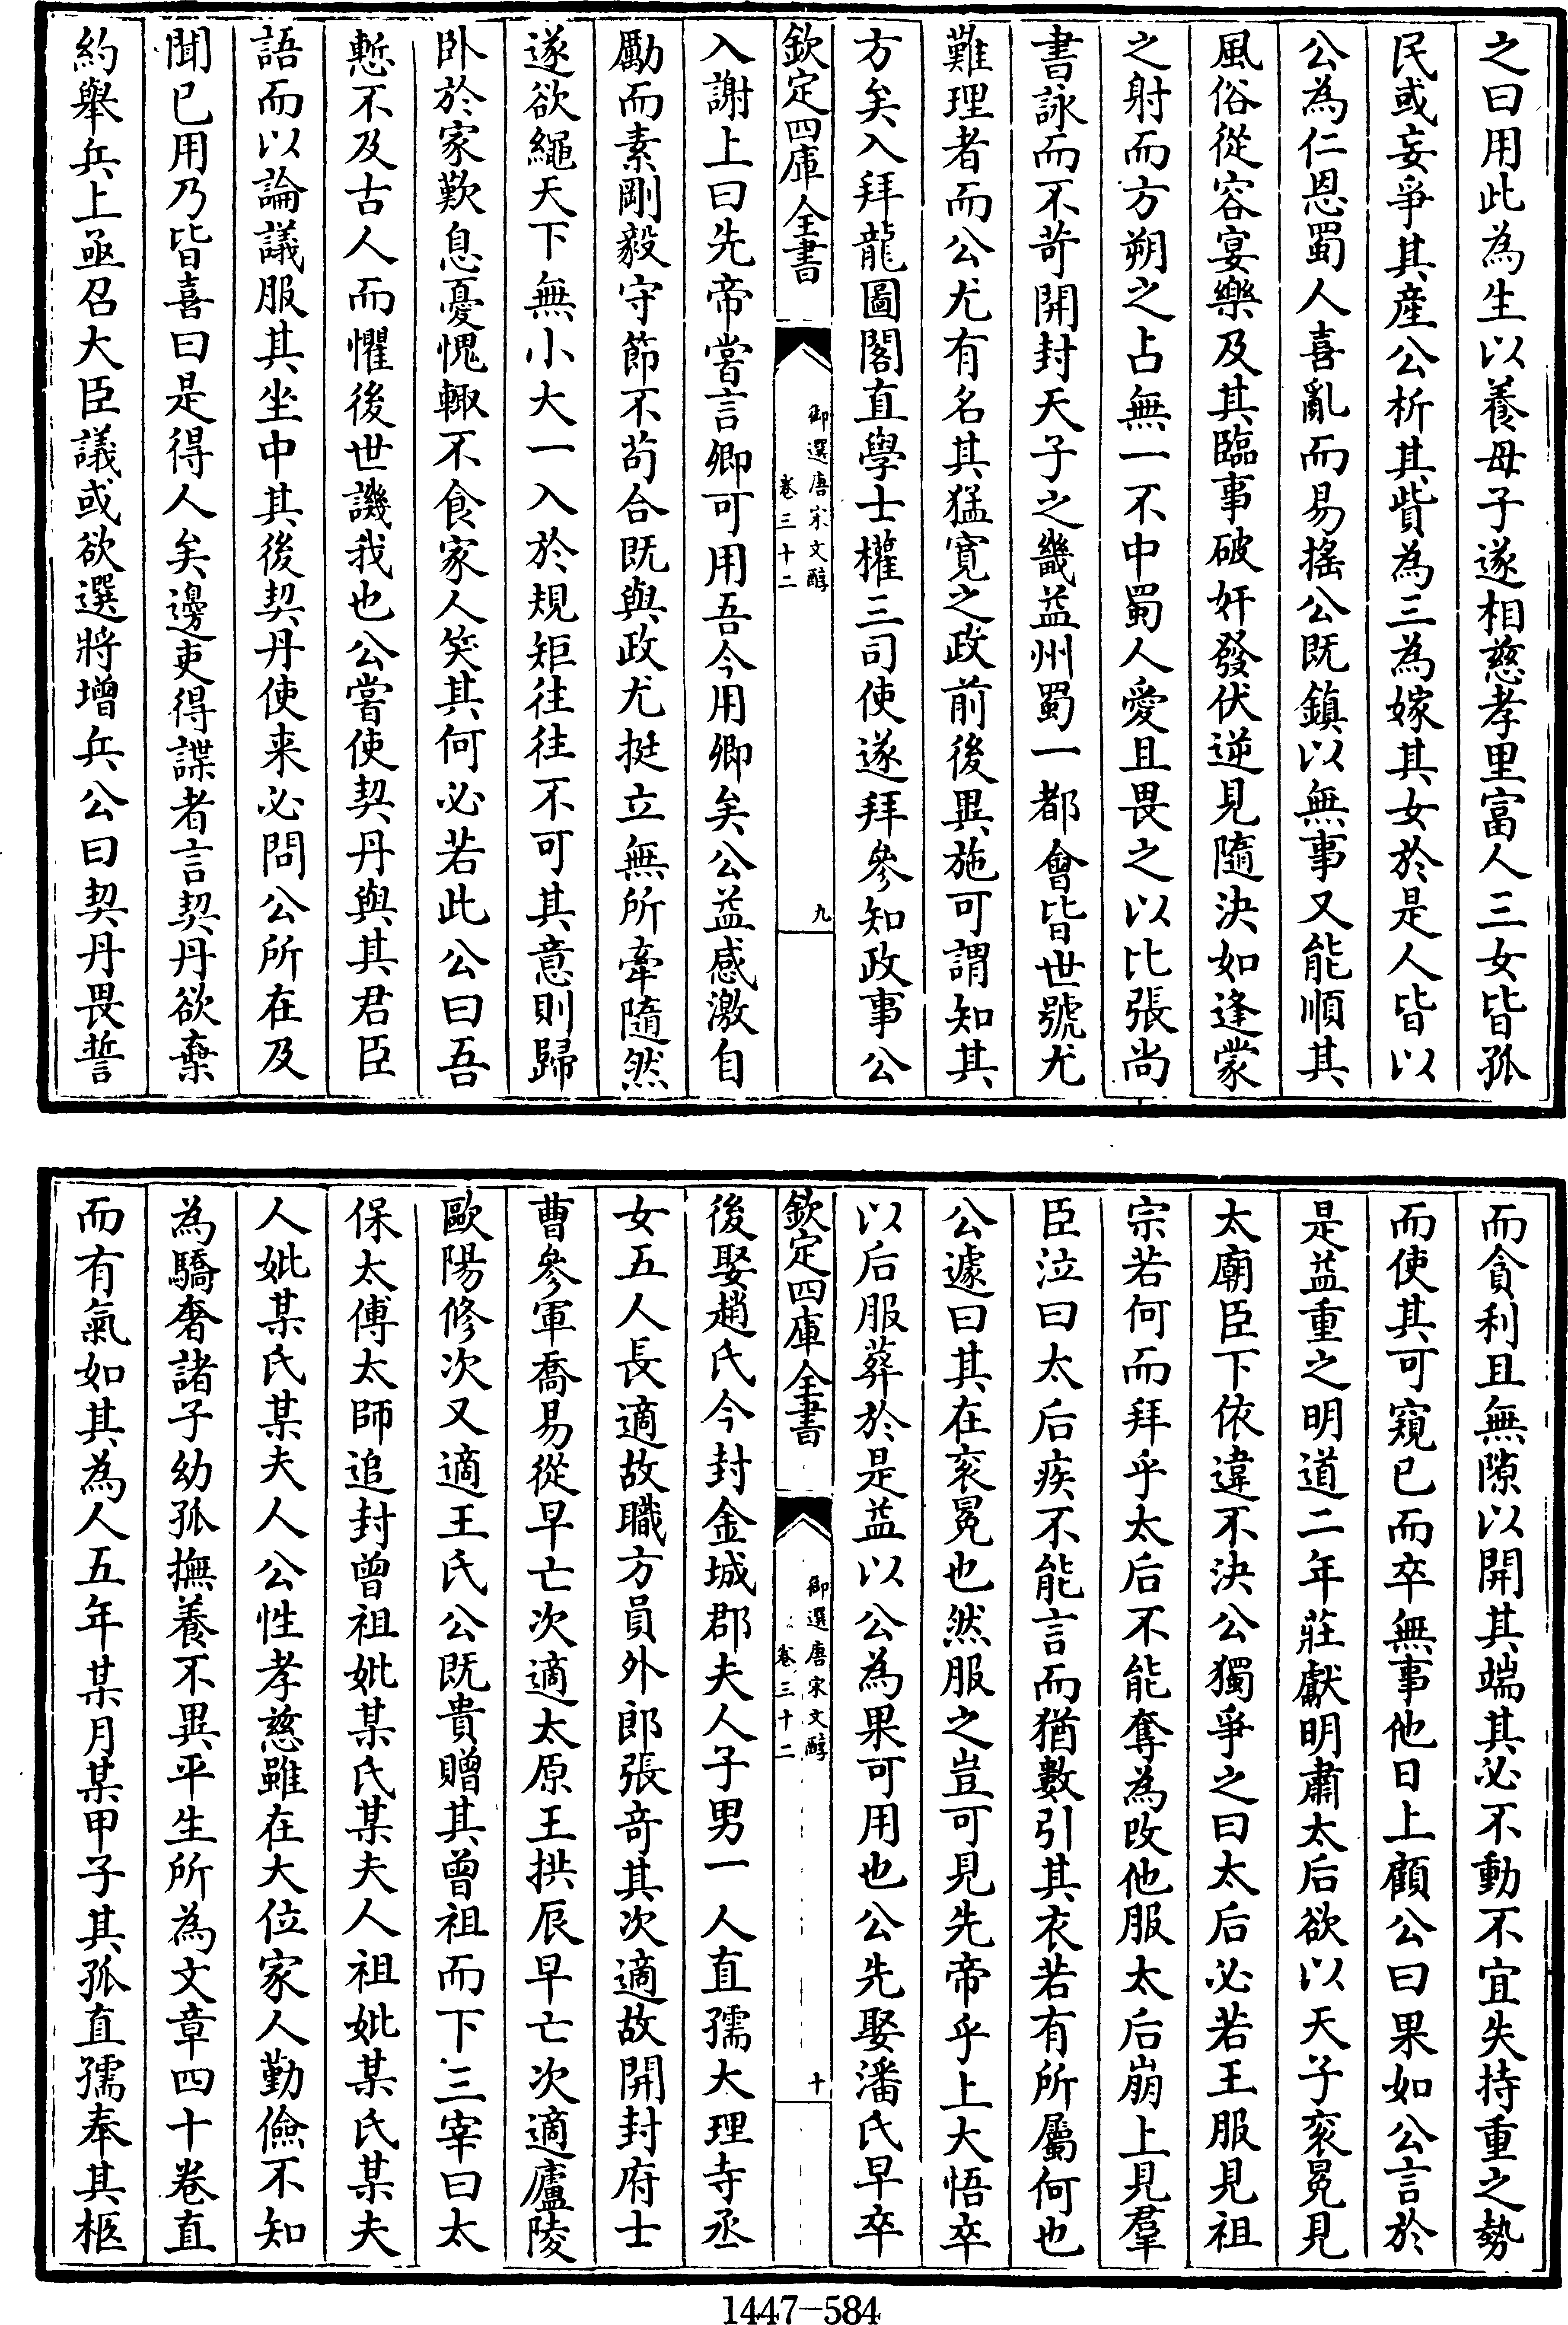 之曰用此為生以養母子遂相慈孝里富人三女皆孤
民或妄爭其産公析其貲為三為嫁其女於是人皆以
公為仁恩蜀人喜亂而易揺公既鎮以無事又能順其
風俗從容宴樂及其臨事破奸發伏逆見隨決如逢蒙
之射而方朔之占無一不中蜀人愛且畏之以比張尚
書詠而不苛開封天子之畿益州蜀一都㑹皆世號尤
難理者而公尤有名其猛寛之政前後異施可謂知其
方矣入拜龍圖閣直學士權三司使遂拜參知政事公
欽定四庫全書
御選唐宋文醇
卷三十二
九
入謝上曰先帝嘗言卿可用吾今用卿矣公益感激自
勵而素剛毅守節不茍合既與政尤挺立無所牽隨然
遂欲繩天下無小大一入於規矩往往不可其意則歸
卧於家歎息憂愧輙不食家人笑其何必若此公曰吾
慙不及古人而懼後世譏我也公嘗使契丹與其君臣
語而以論議服其坐中其後契丹使来必問公所在及
聞已用乃皆喜曰是得人矣邊吏得諜者言契丹欲棄
約舉兵上亟召大臣議或欲選將增兵公曰契丹畏誓
而貪利且無隙以開其端其必不動不宜失持重之勢
而使其可窺已而卒無事他日上顧公曰果如公言於
是益重之明道二年莊獻明肅太后欲以天子衮冕見
太廟臣下依違不決公獨爭之曰太后必若王服見祖
宗若何而拜乎太后不能奪為改他服太后崩上見羣
臣泣曰太后疾不能言而猶數引其衣若有所屬何也
公遽曰其在衮冕也然服之豈可見先帝乎上大悟卒
以后服葬於是益以公為果可用也公先娶潘氏早卒
欽定四庫全書
御選唐宋文醇
卷三十二
十
後娶趙氏今封金城郡夫人子男一人直孺大理寺丞
女五人長適故職方員外郎張竒其次適故開封府士
曹參軍喬易從早亡次適太原王拱辰早亡次適廬陵
歐陽修次又適王氏公既貴贈其曾祖而下三宰曰太
保太傅太師追封曾祖妣某氏某夫人祖妣某氏某夫
人妣某氏某夫人公性孝慈雖在大位家人勤儉不知
為驕奢諸子幼孤撫養不異平生所為文章四十卷直
而有氣如其為人五年某月某甲子其孤直孺奉其柩
1447-584